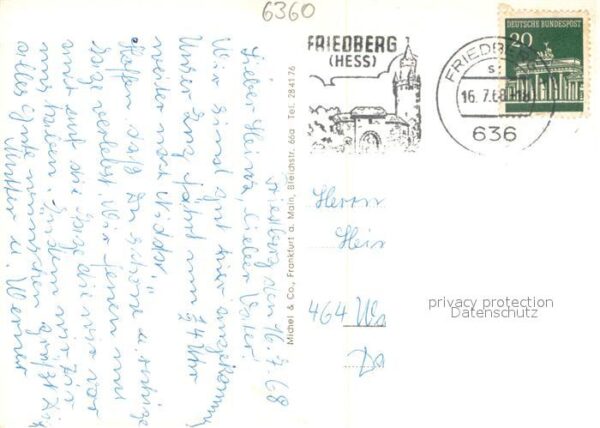 6360
FRIEDBERG
(HESS)
DEUTSCHE BUNDESPOST
20
FRIEDBERG
16.7.68-18
636
Friedberg den 16.7.68
Lieber Heinz, lieber Vater!
Wir sind gut hier angekommen
Unser Zug fährt um 3/4 4 Uhr
weiter nach Nidda.
Hoffen, daß Du schöne u. ruhige
Tage verlebst. Wir freuen uns
auf die Tage die wir vor
uns haben. Indem wir Dir
alles Gute wünschen grüßt Dich
Mutter u. Werner
Michel & Co., Frankfurt a. Main, Bleidsstr. 66a Tel. 284176
Herrn
Hein
464 Wa
privacy protection
Datenschutz